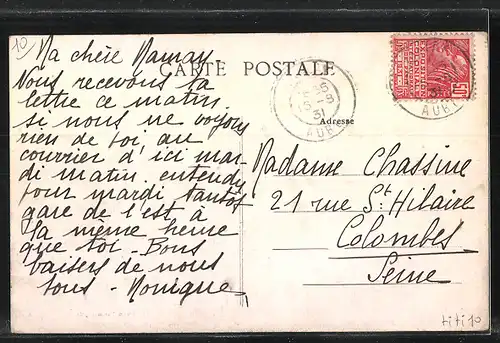 10
Ma chère Maman
Nous recevons ta
lettre ce matin.
si nous ne voyons
rien de toi au
courrier d'ici mar
di matin. entendu
pour mardi tantôt
gare de l'est à
la même heure
que toi - Bons
baisers de nous
tous - Monique
CARTE POSTALE
5-3
31
AUBE
Adresse
AUBE
Madame Chassine
21 rue St Hilaire
Colombes
Seine
titi10